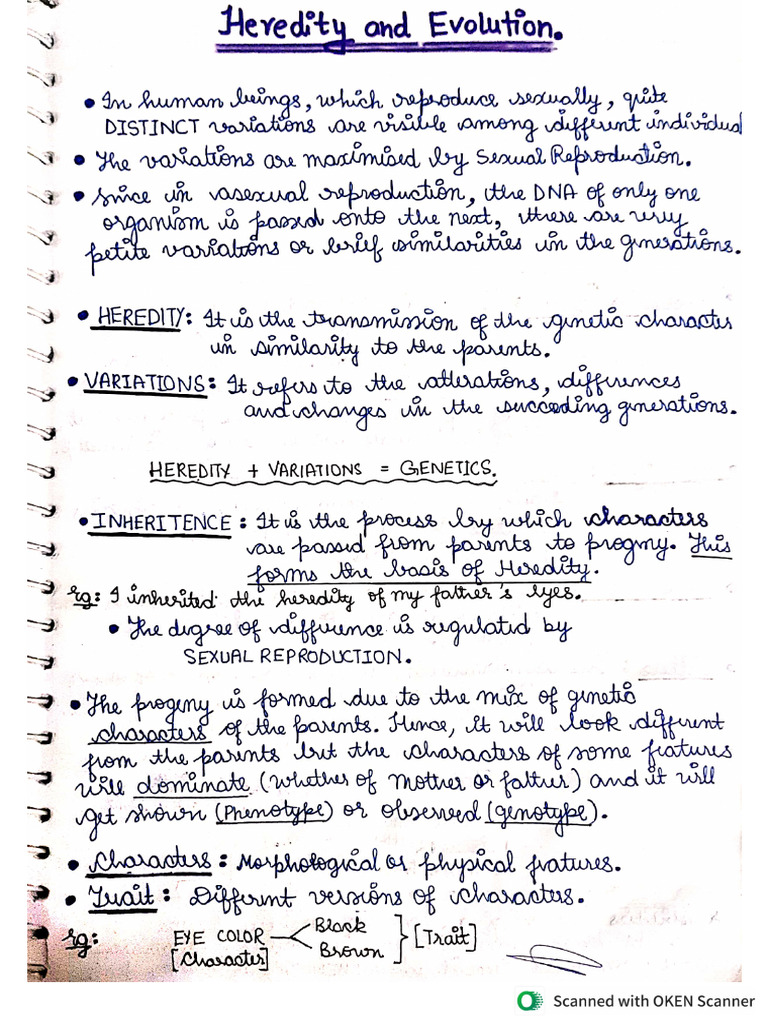 Heredity and Evolution.
• In human beings, which reproduce sexually, quite
DISTINCT variations are visible among different individual
• The variations are maximised by Sexual Reproduction.
• Since in asexual reproduction, the DNA of only one
organism is passed onto the next, there are very
petite variations or brief similarities in the generations.
• HEREDITY: It is the transmission of the genetic character
in similarity to the parents.
• VARIATIONS: It refers to the alterations, differences
and changes in the succeding generations.
HEREDITY + VARIATIONS = GENETICS.
• INHERITENCE: It is the process by which characters
are passed from parents to progeny. This
forms the basis of Heredity.
Eg: I inherited the heredity of my father's eyes.
• The degree of difference is regulated by
SEXUAL REPRODUCTION.
• The progeny is formed due to the mix of genetic
characters of the parents. Hence, it will look different
from the parents but the characters of some features
will dominate (whether of mother or father) and it will
get shown (Phenotype) or observed (genotype).
• Characters: Morphological or physical features.
• Trait: Different versions of characters.
Eg: EYE COLOR < Black } [Trait]
[Character] Brown
Scanned with OKEN Scanner